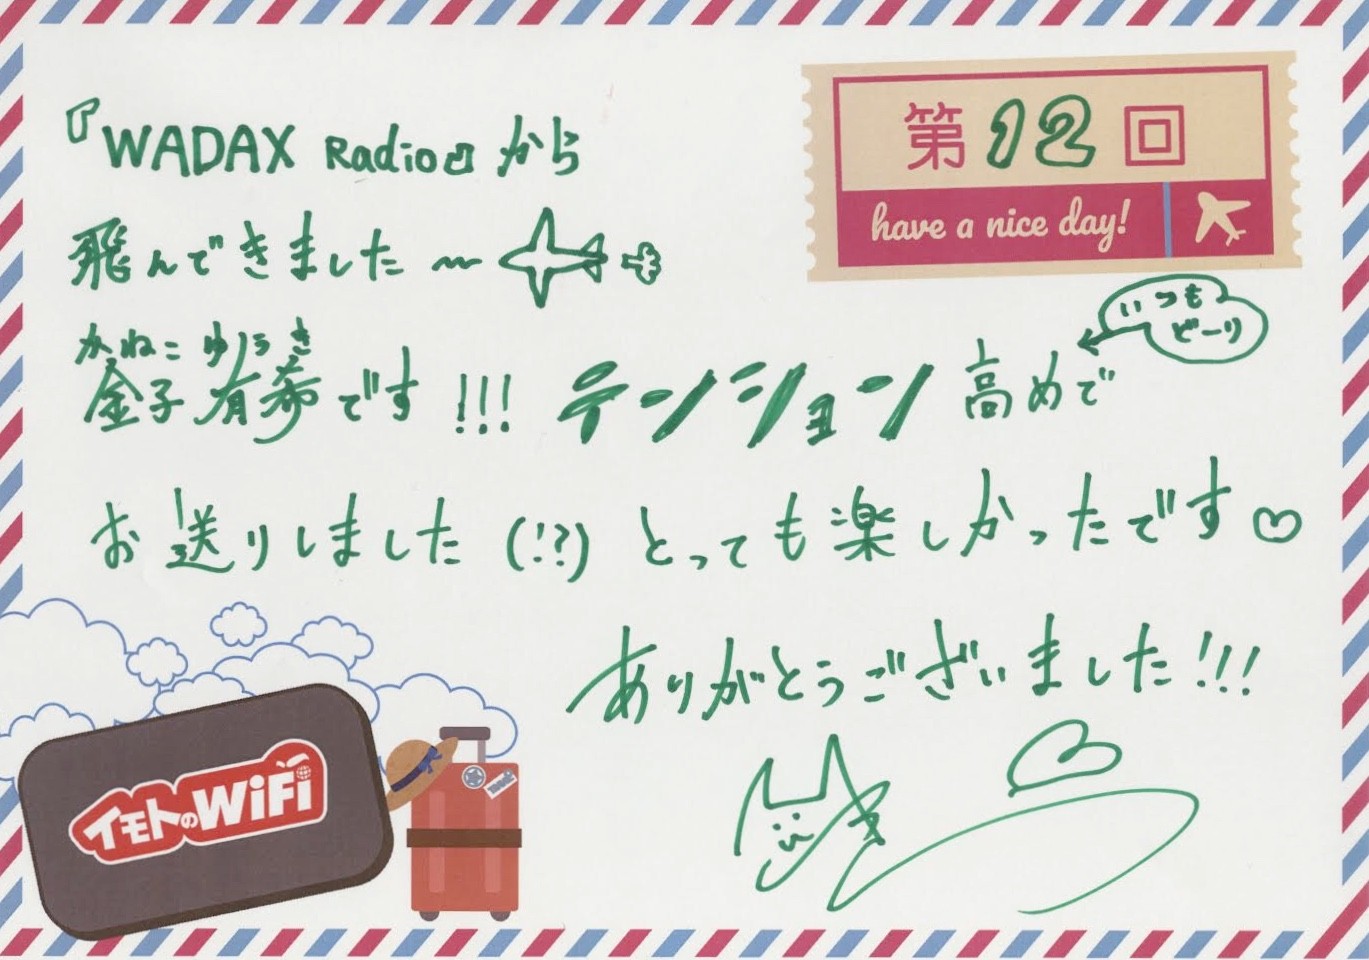 『WADAX Radio』から
第12回
have a nice day!
飛んできました〜
いつも
どーり
かねこ ゆうき
金子 有希です!!! テンション高めで
お送りしました(!?) とっても楽しかったです♡
ありがとうございました!!!
イモトのWiFi